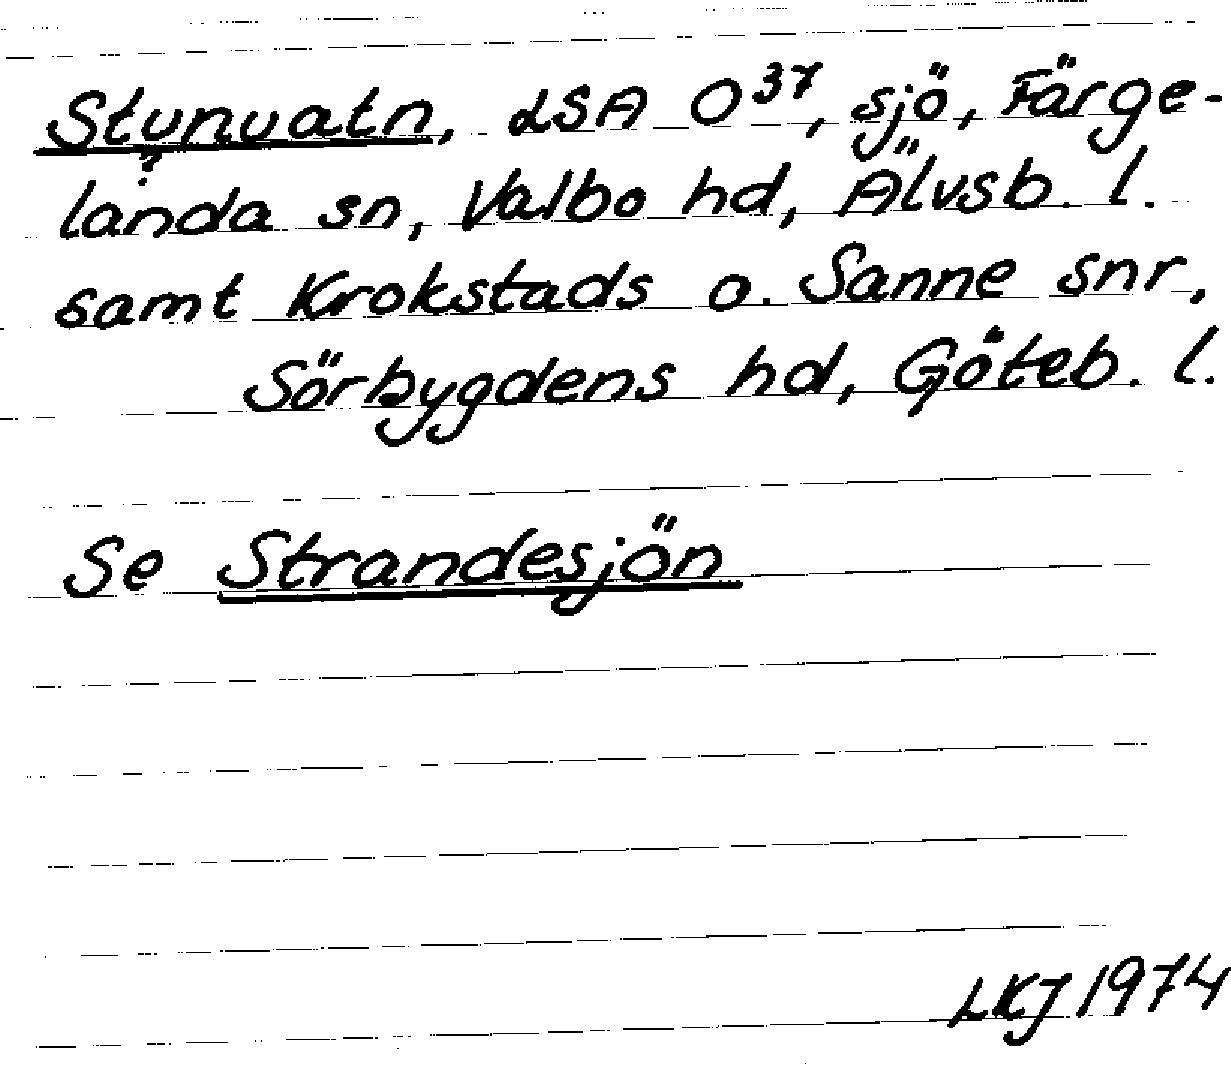 Stunvatn, LSA O37, sjö, Färge-
?
landa sn, Valbo hd, Älvsb. l.
samt Krokstads o. Sanne snr,
Sörbygdens hd, Göteb. l.
Se Strandesjön
LKJ 1974